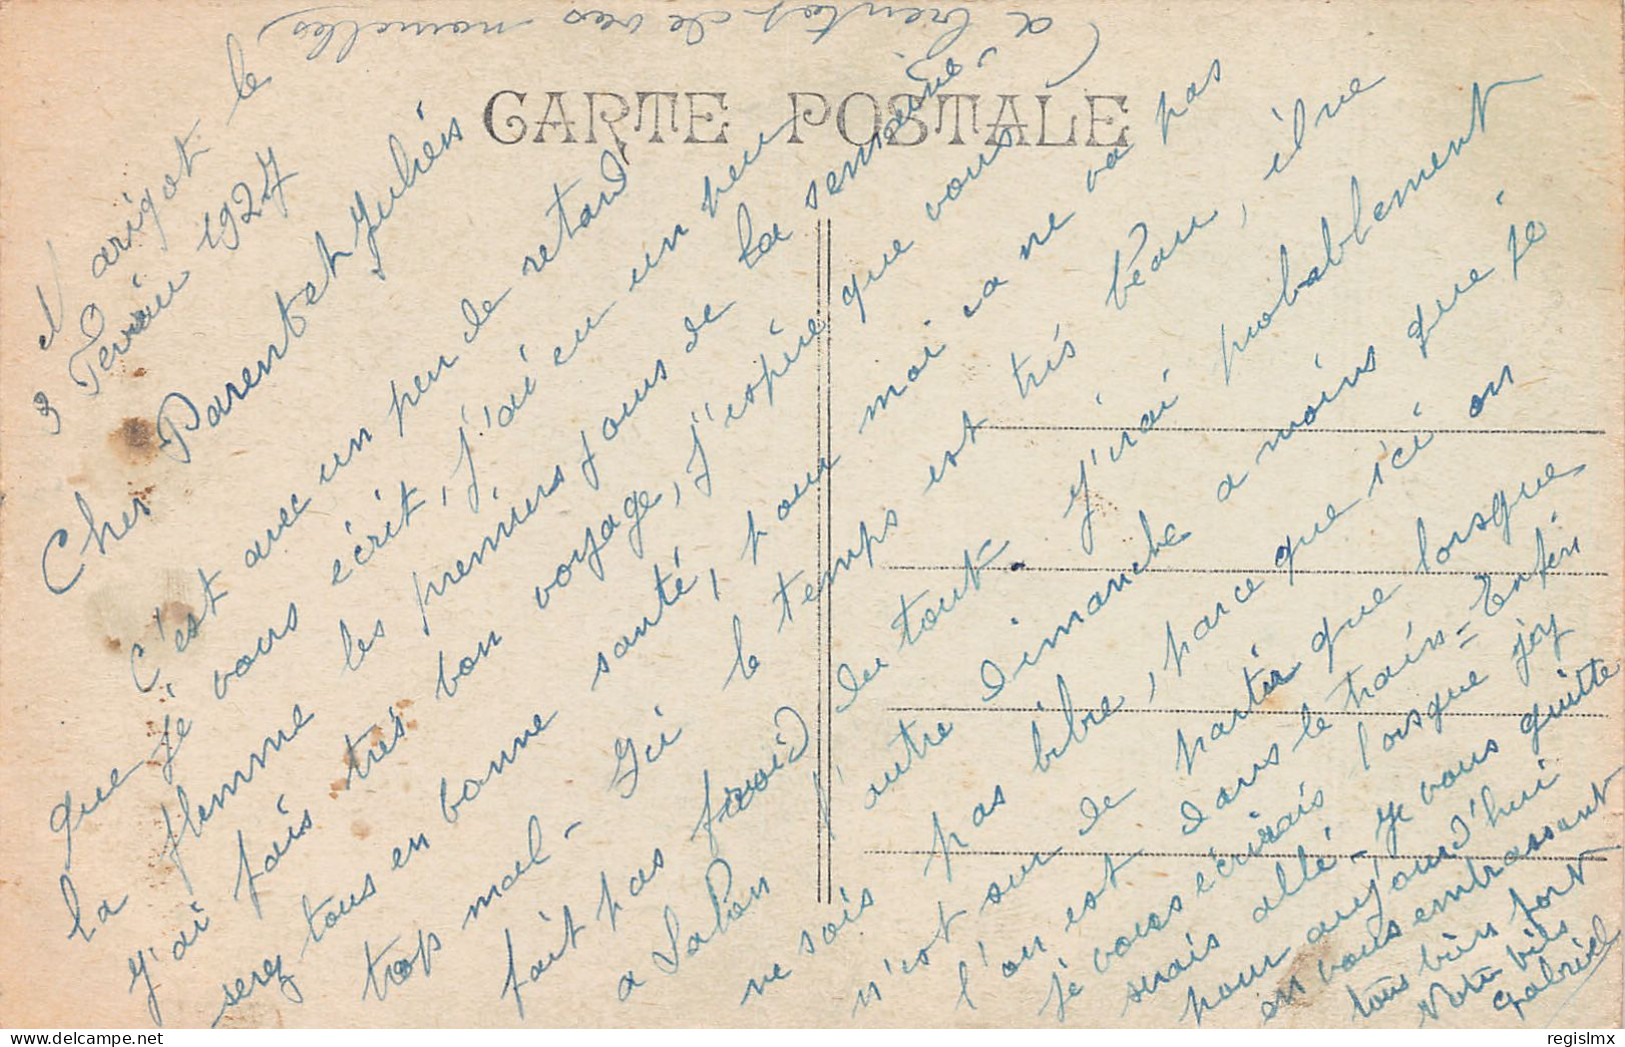 CARTE POSTALE
Marigot le
3 Fevrier 1927
Cher Parent et Julien
C'est avec un peu de retard
que je vous écrit, j'ai eu un peu
la flemme les premiers jours de la semaine -
J'ai fais très bon voyage, j'espère que vous
serez tous en bonne santé, pour moi ca ne va pas
trop mal - Ici le temps est très beau, il ne
fait pas froid du tout - J'irai probablement
a Salon l'autre Dimanche a moins que je
ne sois pas libre, parce que ici on
n'est sur de partir que lorsque
l'on est dans le train = Enfin
je vous écrirais lorsque j'y
serais allé - Je vous quitte
pour aujourd'hui
en vous embrassant
tous bien fort
Votre fils
Gabriel
(a bientot de vos nouvelles
regislmx